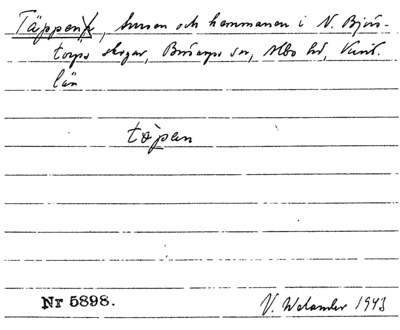 Täppen, husen och hemmanen i N. Björs-
torps skogar, Brösarps sn, Albo hd, Krist.
län
töpan
Nr 5898.
V. Welander 1943